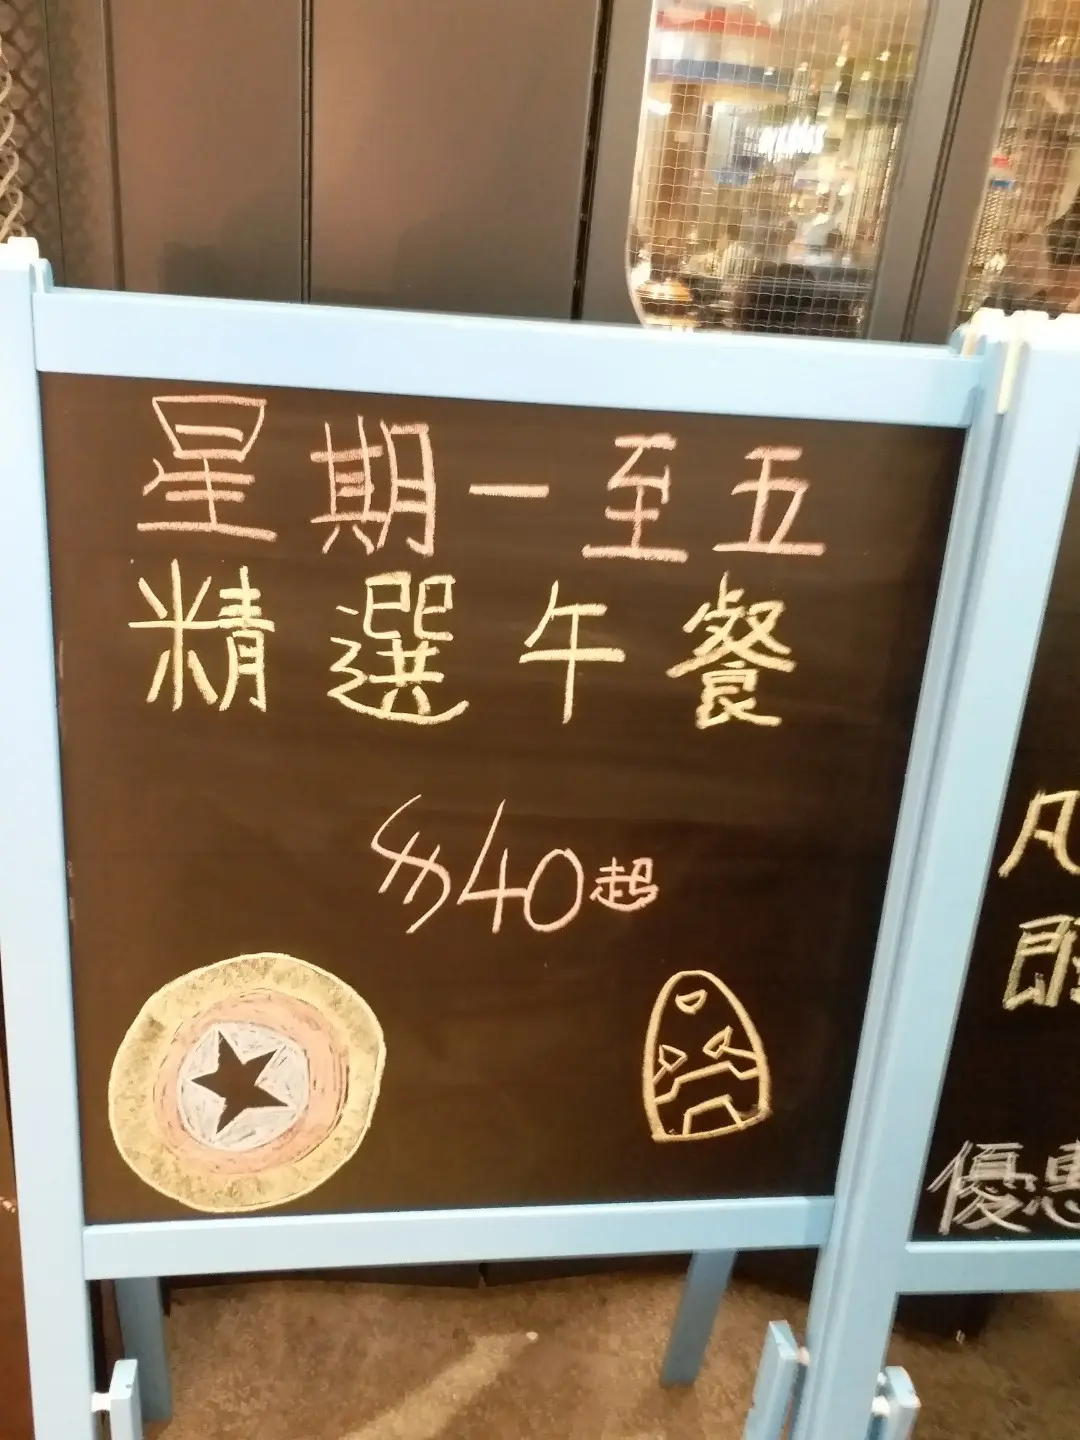 星期一至五
精選午餐
$40起
凡
優惠